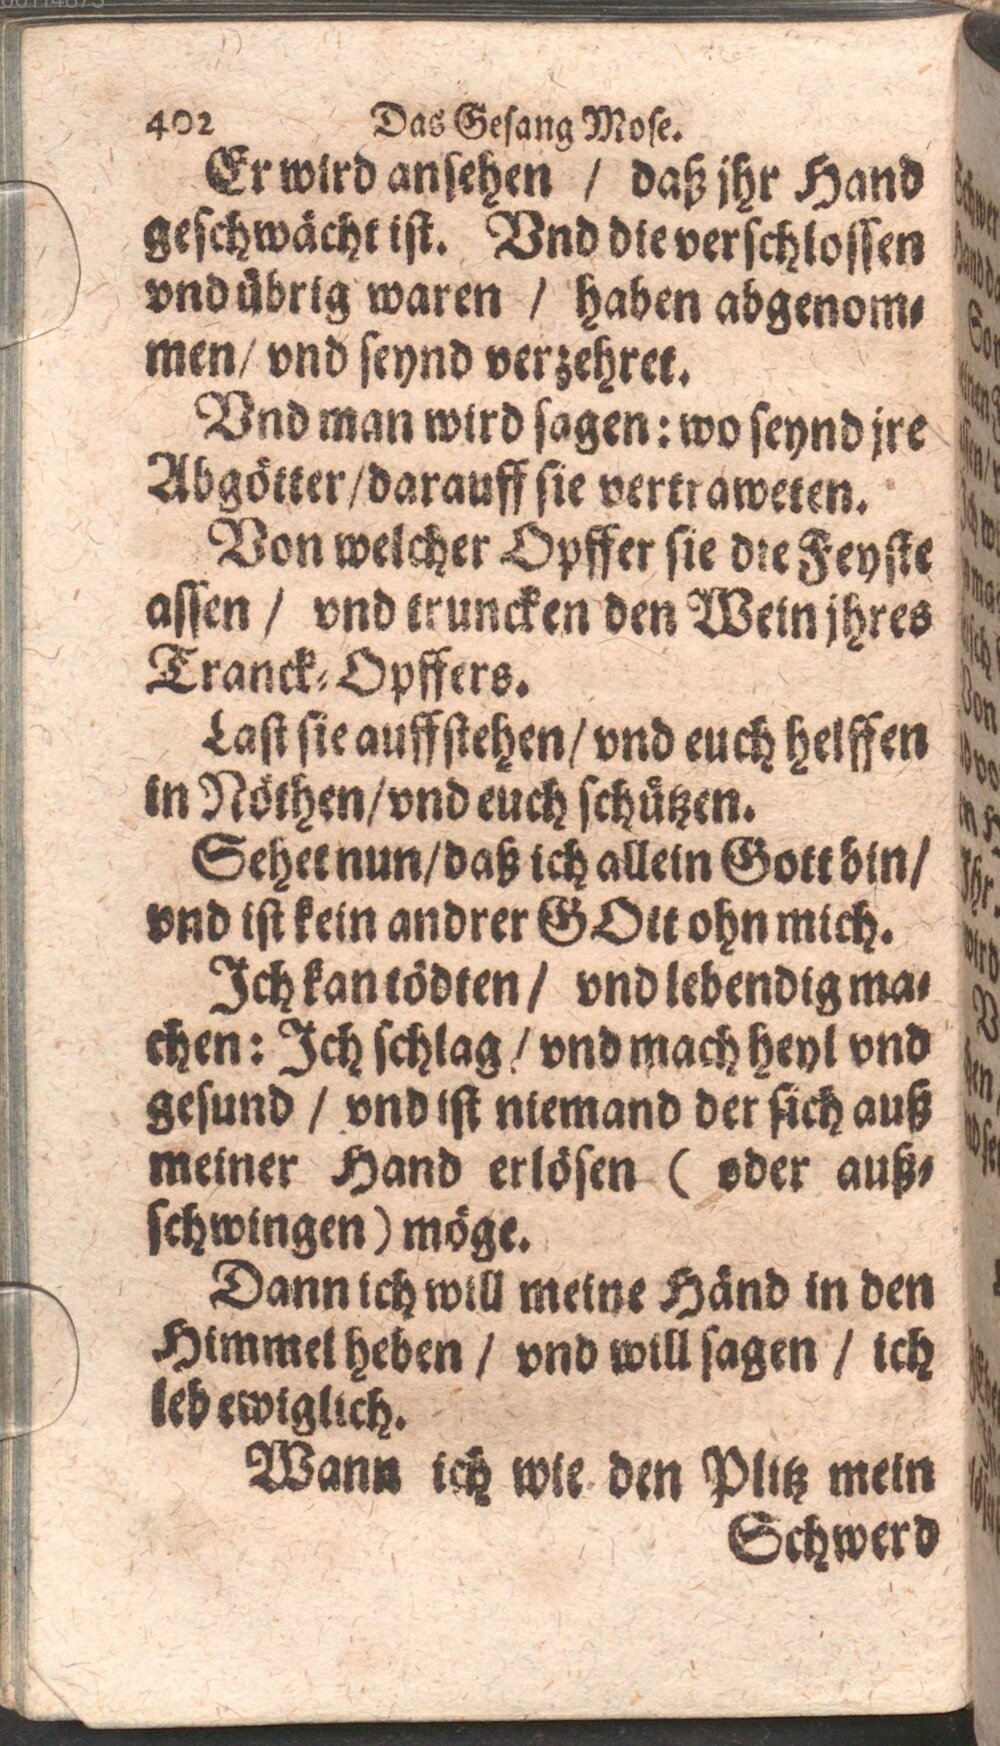 402 Das Gesang Mose.
Er wird ansehen / daß jhr Hand
geschwächt ist. Vnd die verschlossen
vnd übrig waren / haben abgenom-
men / vnd seynd verzehret.
Vnd man wird sagen: wo seynd jre
Abgötter / darauff sie vertraweten.
Von welcher Opffer sie die Feyste
assen / vnd truncken den Wein jhres
Tranck-Opffers.
Last sie auffstehen / vnd euch helffen
in Nöthen / vnd euch schützen.
Sehet nun / daß ich allein Gott bin /
vnd ist kein andrer GOtt ohn mich.
Ich kan tödten / vnd lebendig ma-
chen: Ich schlag / vnd mach heyl vnd
gesund / vnd ist niemand der sich auß
meiner Hand erlösen ( oder auß-
schwingen ) möge.
Dann ich will meine Händ in den
Himmel heben / vnd will sagen / ich
leb ewiglich.
Wann ich wie den Plitz mein
Schwerd